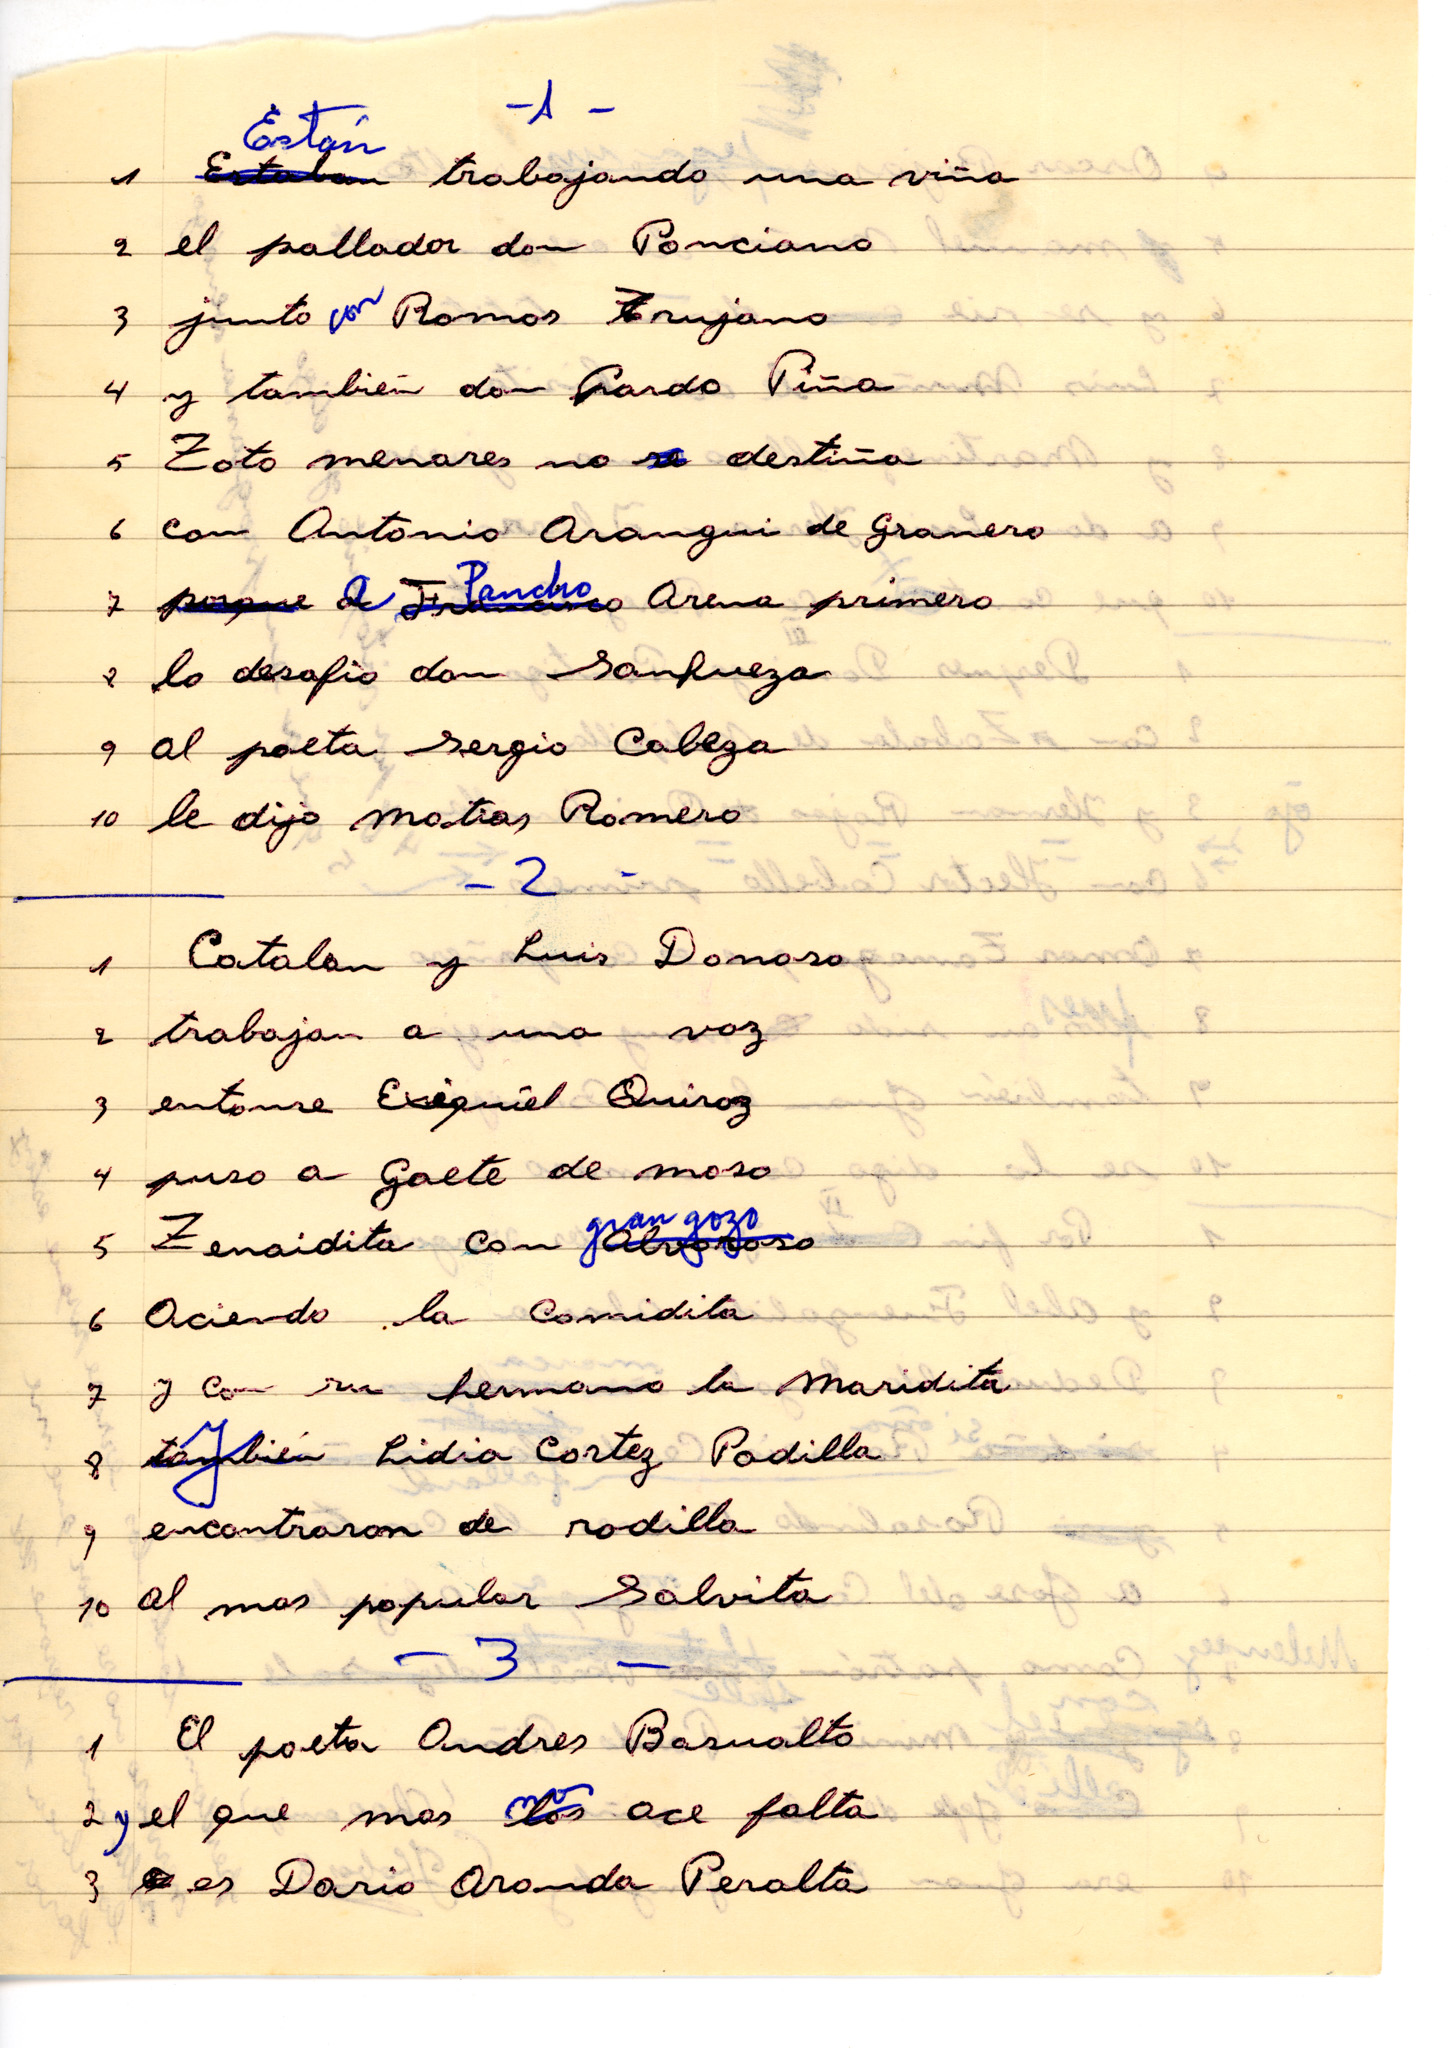 -1-
Están
1 Estaban trabajando una viña
2 el pallador don Ponciano
3 junto con Romos Trujano
4 y también don Pardo Piña
5 Zoto menares no se destiña
6 con Antonio Arangui de Granero
Pancho
7 porque a Francisco Arena primero
8 lo desafio don Sanhueza
9 al poeta Sergio Cabeza
10 le dijo Matias Romero
-2-
1 Catalan y Luis Donoso
2 trabajan a una voz
3 entonse Exequiel Quiroz
4 puso a Gaete de moso
gran gozo
5 Zenaidita con Alvoroso
6 Aciendo la Comidita
7 y con su hermano la Maridita
8 también y Lidia Cortez Padilla
9 encontraron de rodilla
10 al mas popular Salvita
-3-
1 El poeta Andres Basualto
2 y el que mas los nos ace falta
3 es Dario Aranda Peralta